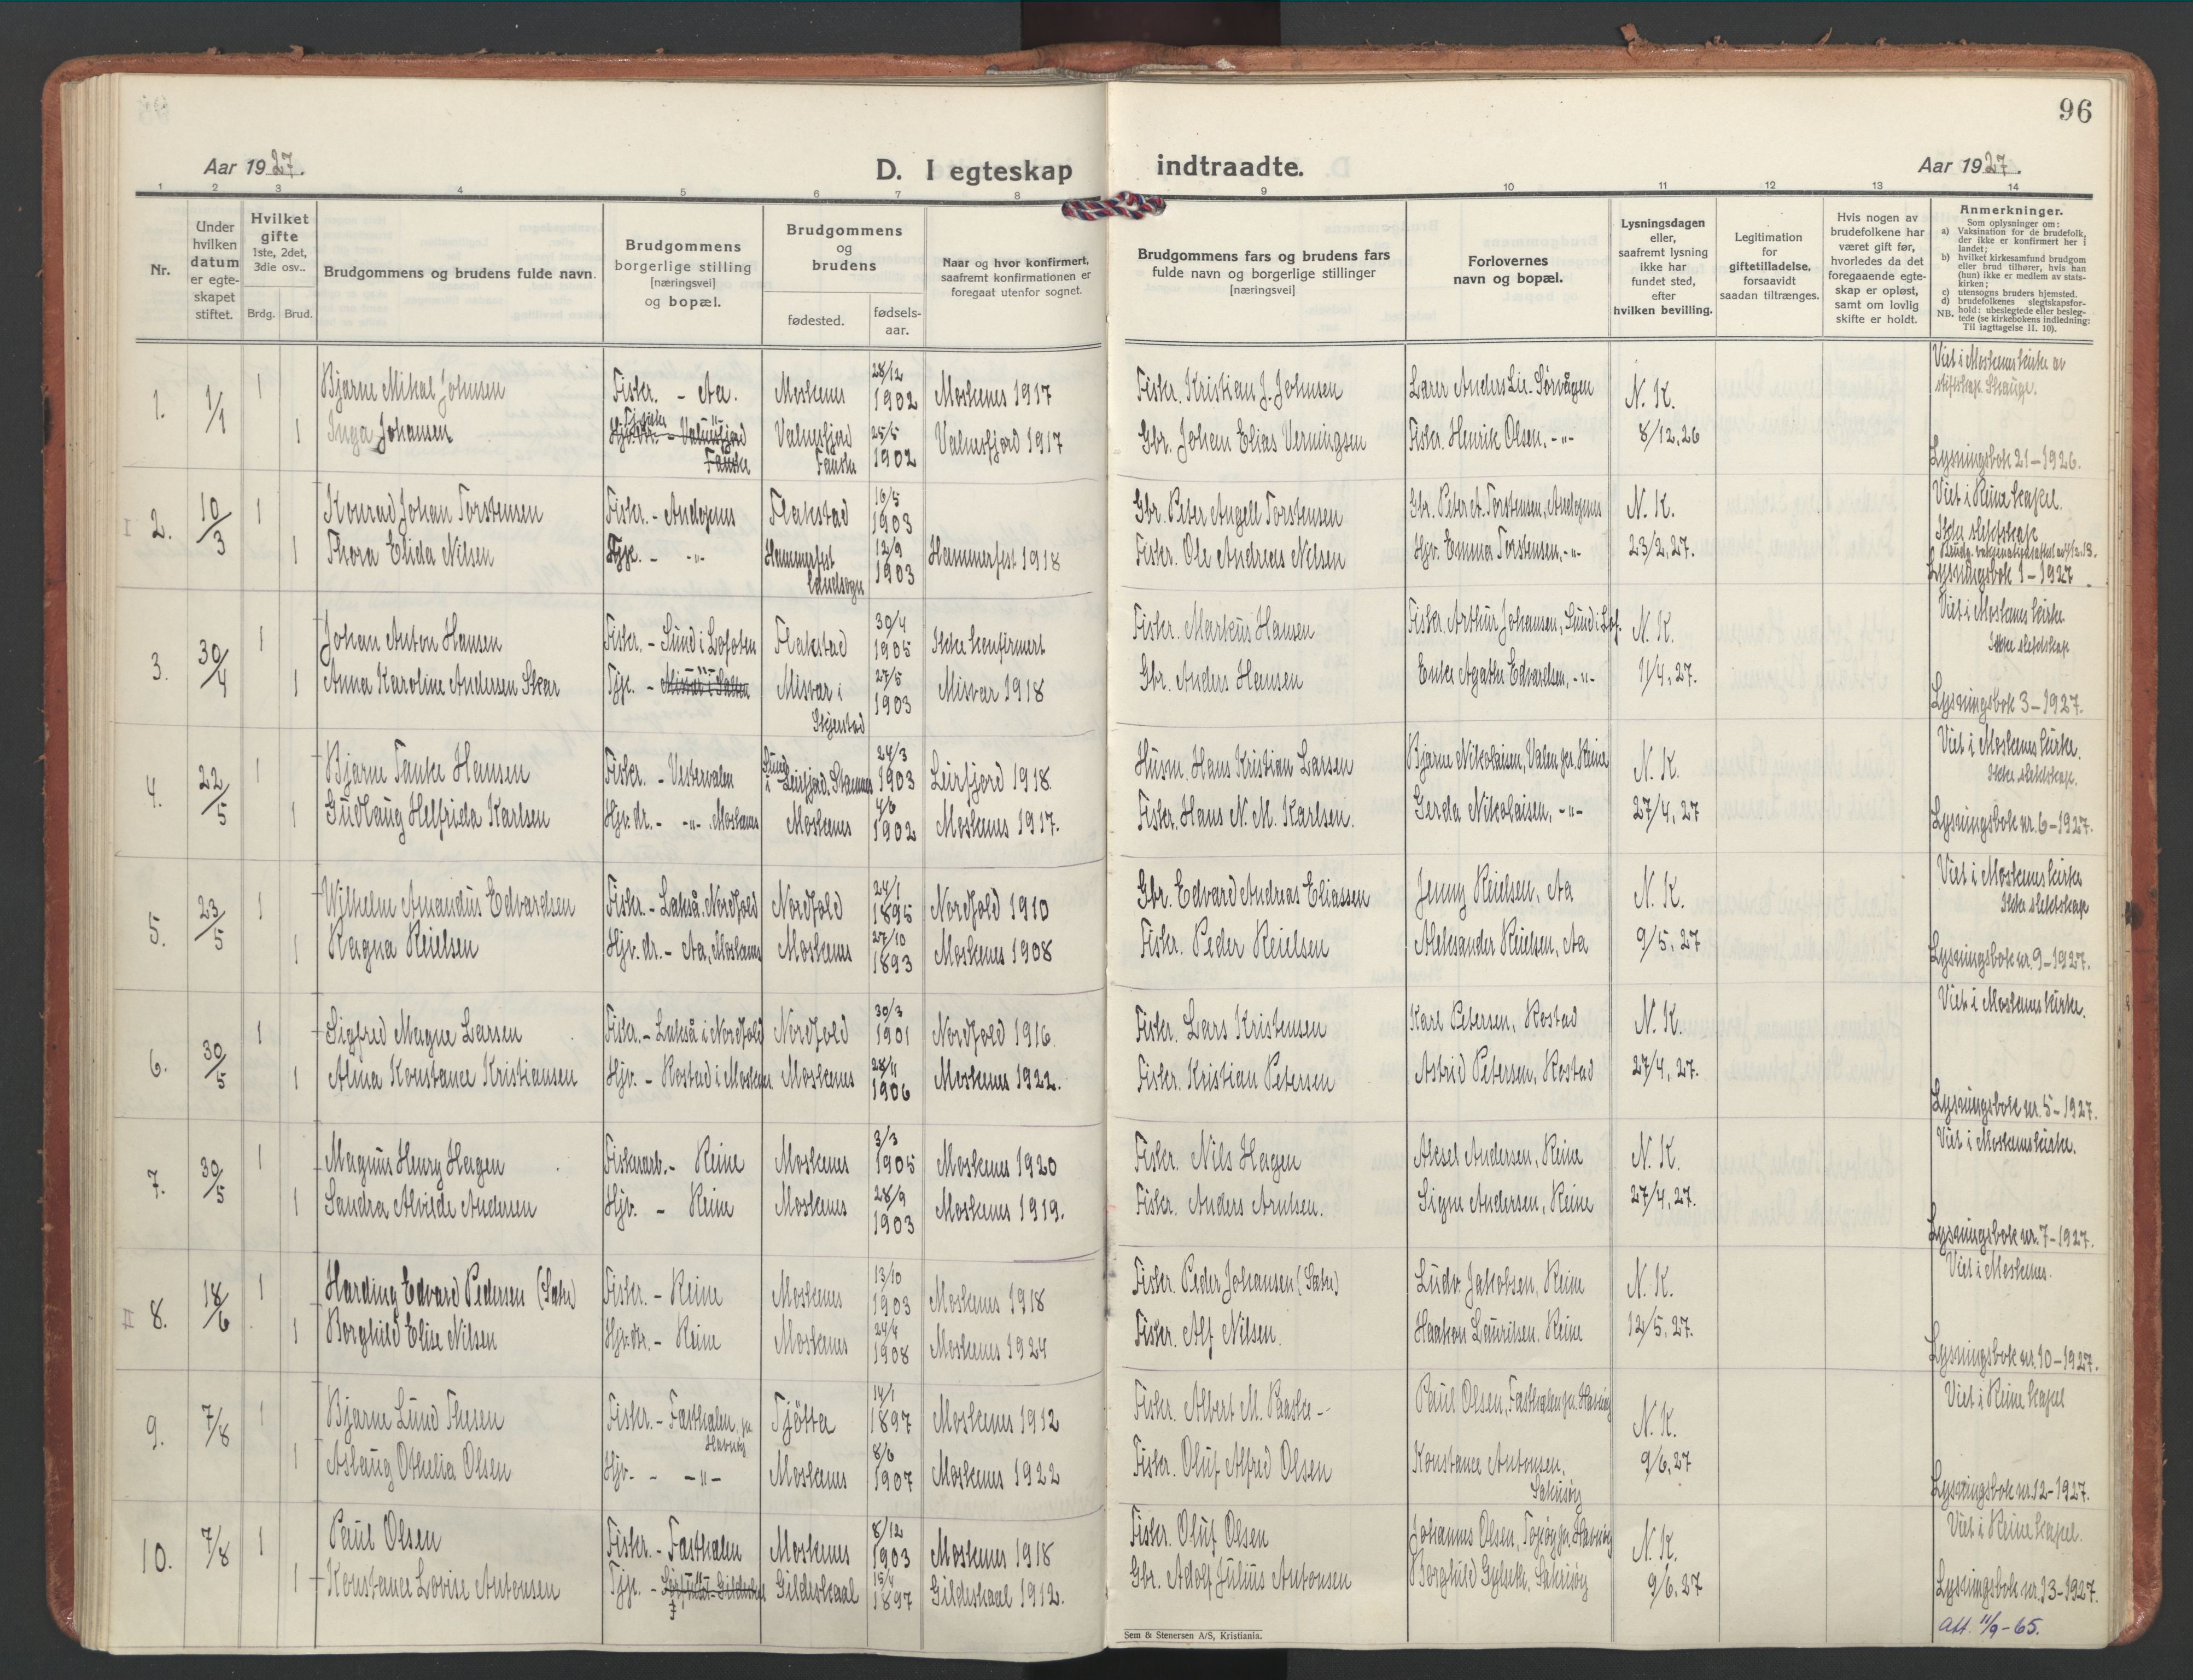 96
Aar 1927.
D. I egteskap
indtraadte.
Aar 1927.
1 2 3 4 5 6 7 8 9 10 11 12 13 14
Nr.
Under hvilken datum er egte-skapet stiftet.
Hvilket gifte 1ste, 2det, 3die osv..
Brdg. Brud.
Brudgommens og brudens fulde navn.
Brudgommens borgerlige stilling [næringsvei] og bopæl.
Brudgommens og brudens
fødested.
fødsels-aar.
Naar og hvor konfirmert, saafremt konfirmationen er foregaat utenfor sognet.
Brudgommens fars og brudens fars fulde navn og borgerlige stillinger [næringsvei]
Forlovernes navn og bopæl.
Lysningsdagen eller, saafremt lysning ikke har fundet sted, efter hvilken bevilling.
Legitimation for giftetilladelse, forsaavidt saadan tiltrænges.
Hvis nogen av brudefolkene har været gift før, hvorledes da det foregaaende egte-skap er opløst, samt om lovlig skifte er holdt.
Anmerkninger.
Som oplysninger om:
a) Vaksination for de brudefolk, der ikke er konfirmert her i landet;
b) hvilket kirkesamfund brudgom eller brud tilhører, hvis han (hun) ikke er medlem av stats-kirken;
c) utensogns bruders hjemsted.
d) brudefolkenes slegtskapsfor-hold: ubeslegtede eller besleg-tede (se kirkebokens indledning: Til iagttagelse II. 10).
NB.
1. 1/1 1 Bjarne Mikal Johnsen Fisker. - Aa. Moskenes 28/12 1902 Moskenes 1917 Fisker. Kristian J. Johnsen Lærer Anders Lie. Sørvågen N. K. Viet i Moskenes kirke av
stiftskap. Skauge.
1 Inga Johansen Valnesfjord Fauske 25/5 1902 Valnesfjord 1917 Gbr. Johan Elias Verningsen Fisker. Henrik Olsen, -"- 8/12, 26
Lysningsbok 21-1926.
2. 10/3 1 Konrad Johan Torstensen Fisker. - Andopnes Flakstad 16/5 1903 Gbr. Peter Angell Torstensen Gbr. Peter A. Torstensen, Andopnes N. K. Viet i Reine kapel.
Ikke slektskap
1 Thora Elida Nilsen Tyje. - -"- Hammerfest landsogn 12/9 1903 Hammerfest 1918 Fisker. Ole Andreas Nilsen Hjv. Emma Torstensen, -"- 23/2, 27.
Lysningsbok 1-1927
3. 30/4 1 Johan Anton Hansen Fisker. - Sund i Lofoten Flakstad 30/4 1905 Ikke konfirmert Fisker. Markus Hansen Fisker. Arthur Johansen, Sund i Lof. N. K. Viet i Moskenes kirke
Ikke slektskap
1 Anna Karoline Andersen Skar Tje. - Misvær i Salten Misvær i Skjerstad 27/5 1903 Misvær 1918 Gbr. Anders Hansen Enke Agathe Edvardsen, -"- 11/4, 27.
Lysningsbok 3-1927.
4. 22/5 1 Bjarne Tanke Hansen Fisker. - Vestervalen Leirfjord, Stamnes 24/3 1903 Leirfjord 1918. Husm. Hans Kristian Larsen Bjarne Nikolaisen, Valen pr. Reine N. K. Viet i Moskenes kirke.
Ikke slektskap.
1 Gudlaug Helfrida Karlsen Hjv. dr. - -"- . Moskenes Moskenes 4/6 1902 Moskenes 1917. Fisker. Hans N. M. Karlsen. Gerda Nikolaisen, -"- 27/4, 27
Lysningsbok nr. 6-1927.
5. 23/5 1 Wilhelm Amandus Edvardsen Fisker. - Lakså, Nordfold Nordfold 24/1 1895 Nordfold 1910 Gbr. Edvard Andreas Eliassen Jenny Reielsen, Aa N. K. Viet i Moskenes kirke
Ikke slektskap
1 Ragna Reielsen Hjv. dr. - Aa, Moskenes Moskenes 27/10 1893 Moskenes 1908 Fisker. Peder Reielsen Aleksander Reielsen, Aa 9/5, 27
Lysningsbok nr. 9-1927.
6. 30/5 1 Sigfred Magne Larsen Fisker. - Lakså i Nordfold Nordfold 30/3 1901 Nordfold 1916 Fisker. Lars Kristensen Karl Petersen, Rostad N. K. Viet i Moskenes kirke.
1 Alma Konstance Kristiansen Hjv. - Rostad i Moskenes Moskenes 28/11 1906 Moskenes 1922. Fisker. Kristian Petersen Astrid Petersen, Rostad 27/4, 27.
Lysningsbok nr. 5-1927.
7. 30/5 1 Magnus Henry Hagen Fiskerarb. - Reine Moskenes 3/3 1905 Moskenes 1920 Fisker. Nils Hagen Aksel Andersen, Reine N. K. Viet i Moskenes kirke.
1 Sandra Alvilde Andersen Hjv. - Reine Moskenes 28/9 1903 Moskenes 1919. Fisker. Anders Arntsen. Signe Andersen, Reine 27/4, 27.
Lysningsbok nr. 7-1927.
8. 18/6 1 Harding Edvard Pedersen (Sætre) Fisker. - Reine Moskenes 13/10 1903 Moskenes 1918 Fisker. Peder Johansen (Sætre) Ludv. Jakobsen, Reine N. K. Viet i Moskenes.
1 Borghild Elise Nilsen Hjv. dr. - Reine Moskenes 24/4 1908 Moskenes 1924 Fisker. Alf Nilsen. Haakon Lauritsen. Reine 12/5, 27.
Lysningsbok nr. 10-1927.
9. 7/8 1 Bjarne Lund Thesen Fisker. - Fasthalen, pr. Havnøy Tjøtta 14/1 1897 Moskenes 1912 Fisker. Albert M. Paaske - Paul Olsen, Fasthalen pr. Havnøy N. K. Viet i Reine kapel
1 Aslaug Othelia Olsen Hjv. - -"- Moskenes 8/6 1907 Moskenes 1922 Fisker. Oluf Alfred Olsen Konstance Antonsen, Sakrisøy 9/6, 27
Lysningsbok nr. 12-1927.
10. 7/8 1 Paul Olsen Fisker. - Fasthalen Moskenes 8/12 1903 Moskenes 1918 Fisker. Oluf Olsen Johannes Olsen, Topøy pr. Havnøy N. K. Viet i Reine kapel.
1 Konstance Lovise Antonsen Tje. - Gildeskaal 15/4 1897 Gildeskaal 1912. Gbr. Adolf Julius Antonsen Borghild Gylseth, Sakrisøy 9/6. 27 Lysningsbok nr. 13-1927.
Att. 11/9-65.
Sem & Stenersen A/S, Kristiania.